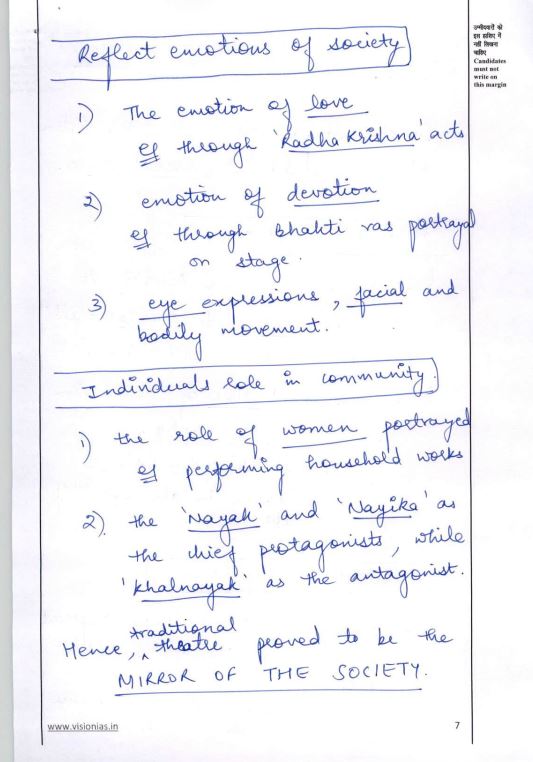 उम्मीदवारों को
इस हाशिए में
नहीं लिखना
चाहिए
Candidates
must not
write on
this margin
Reflect emotions of society
1) The emotion of love
eg through 'Radha Krishna' acts
2) emotion of devotion
eg through Bhakti ras portrayal
on stage.
3) eye expressions, facial and
bodily movement.
Individuals role in community.
1) the role of women portrayed
eg performing household works
2). the 'Nayak' and 'Nayika' as
the chief protagonists, while
'Khalnayak' as the antagonist.
Hence, traditional theatre proved to be the
MIRROR OF THE SOCIETY.
www.visionias.in
7